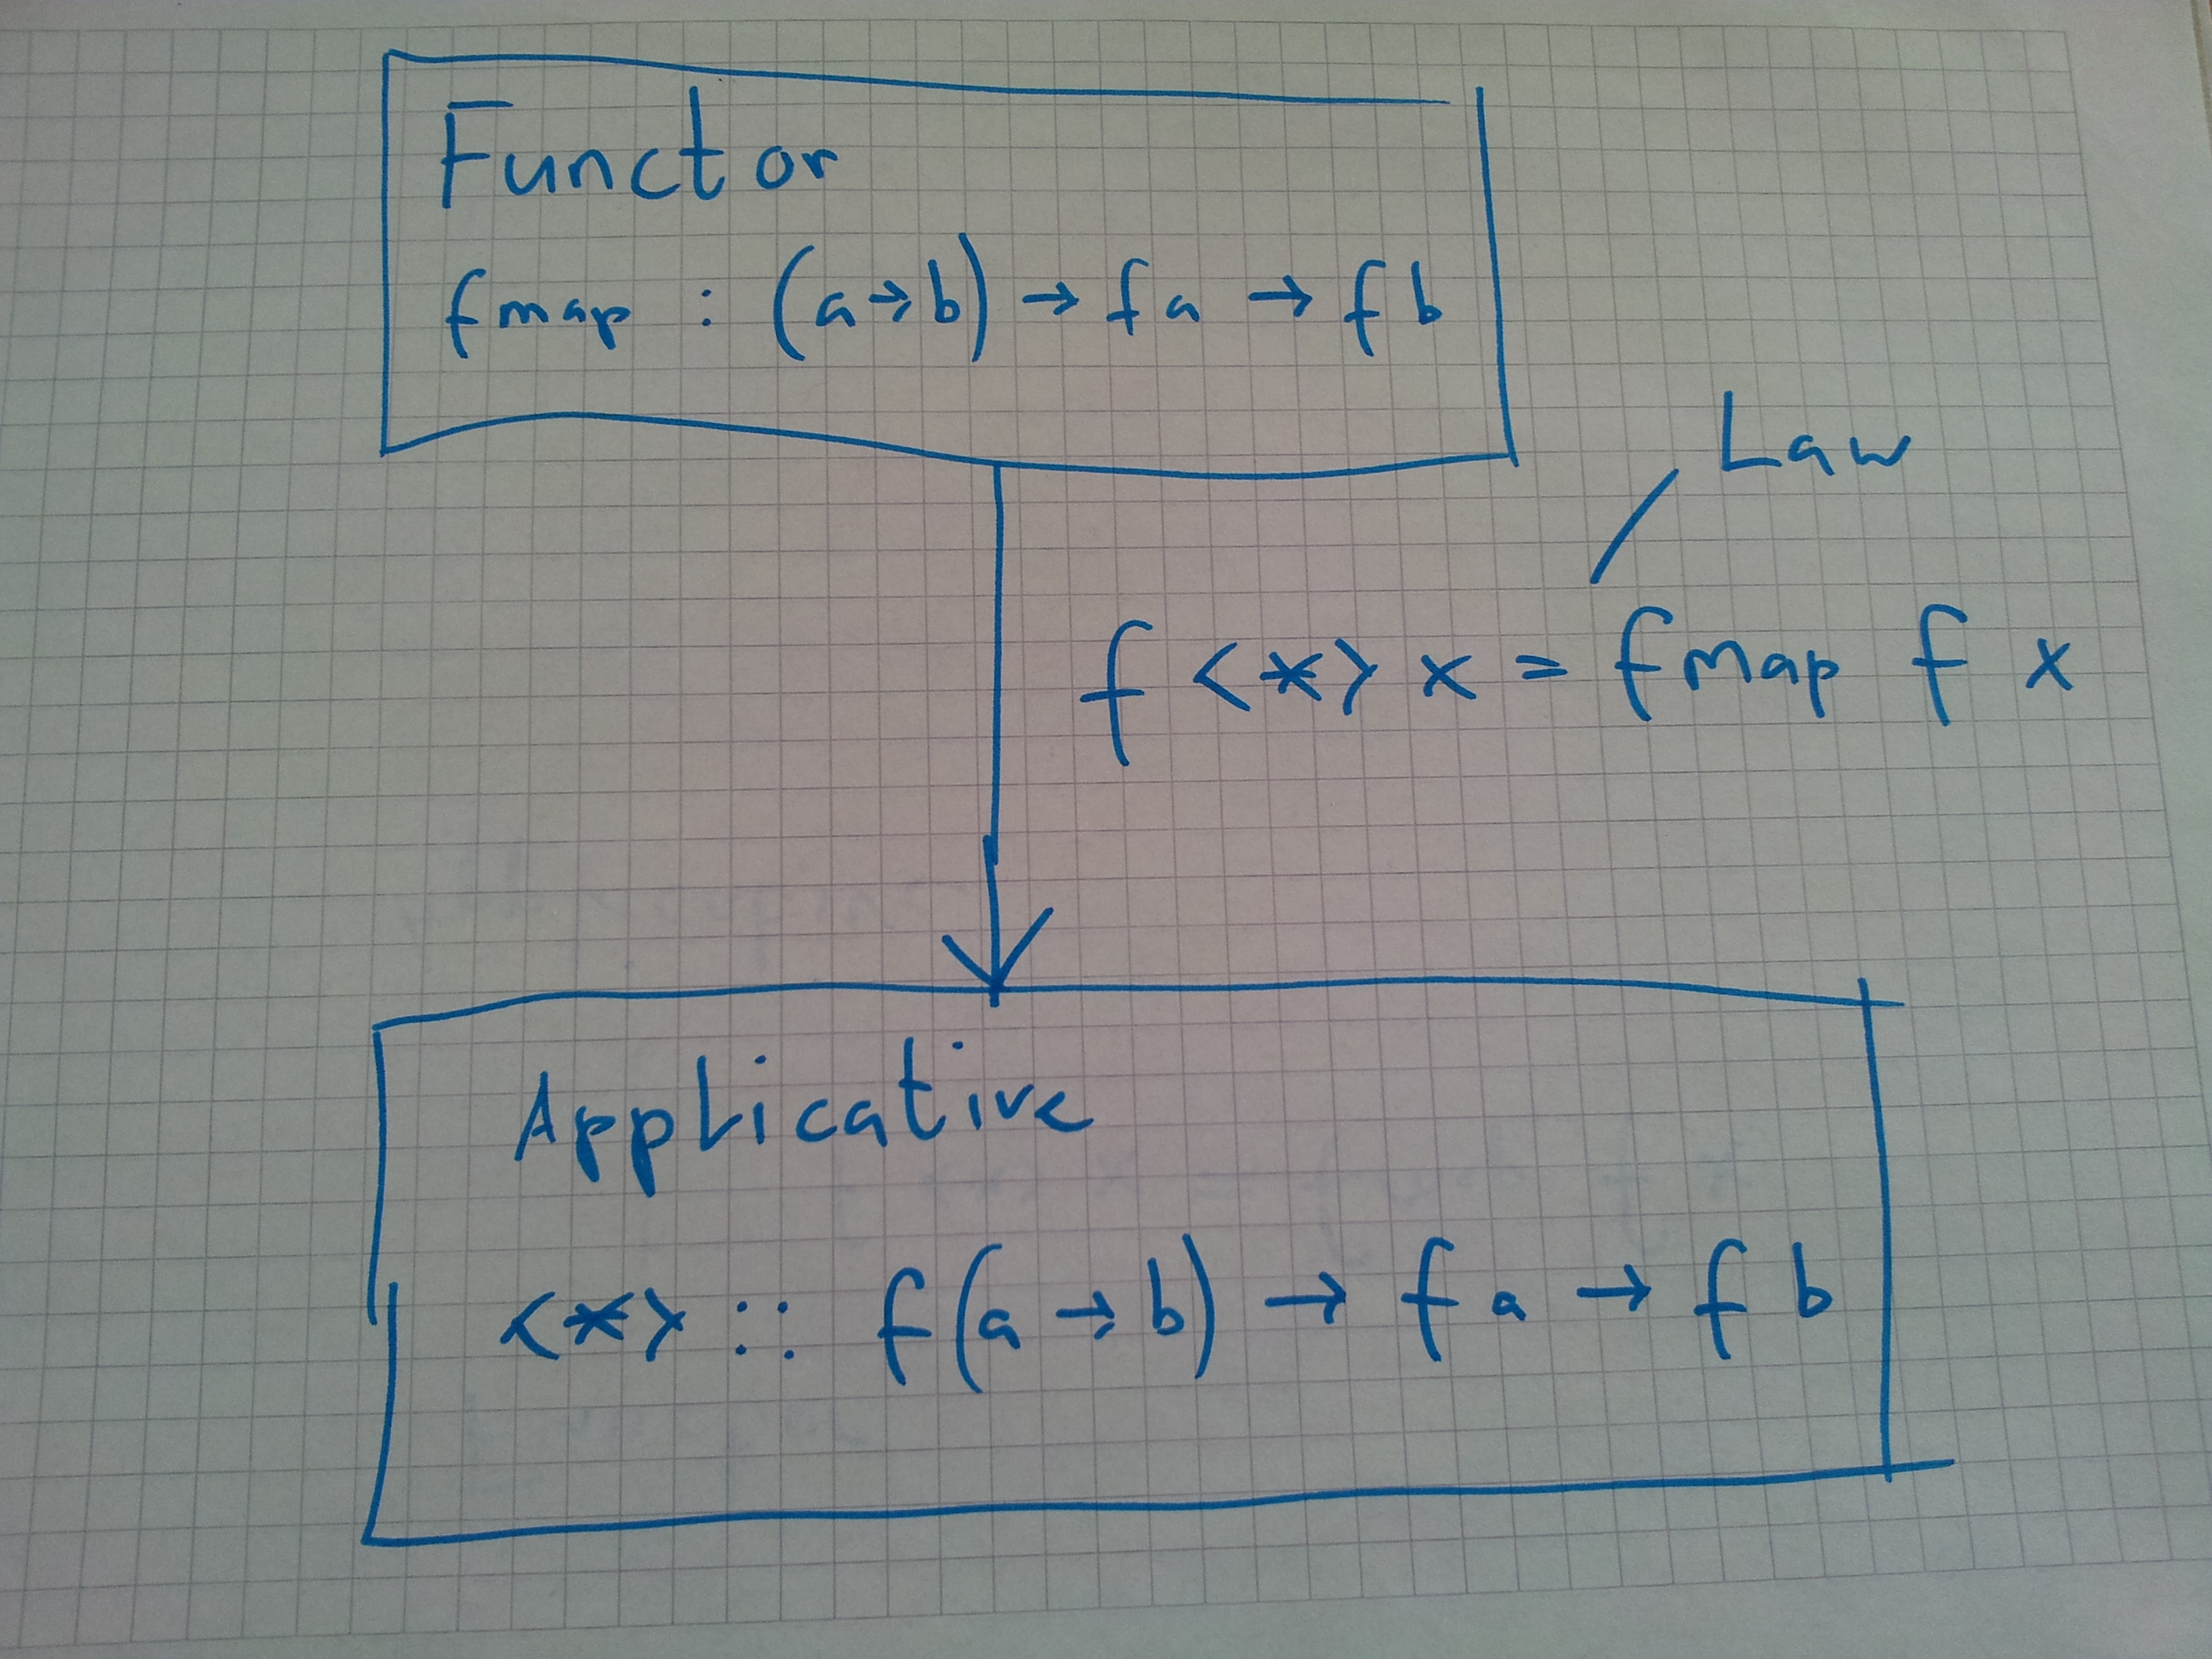 Functor
fmap : (a → b) → f a → f b
Law
f <*> x = fmap f x
Applicative
<*> :: f (a → b) → f a → f b